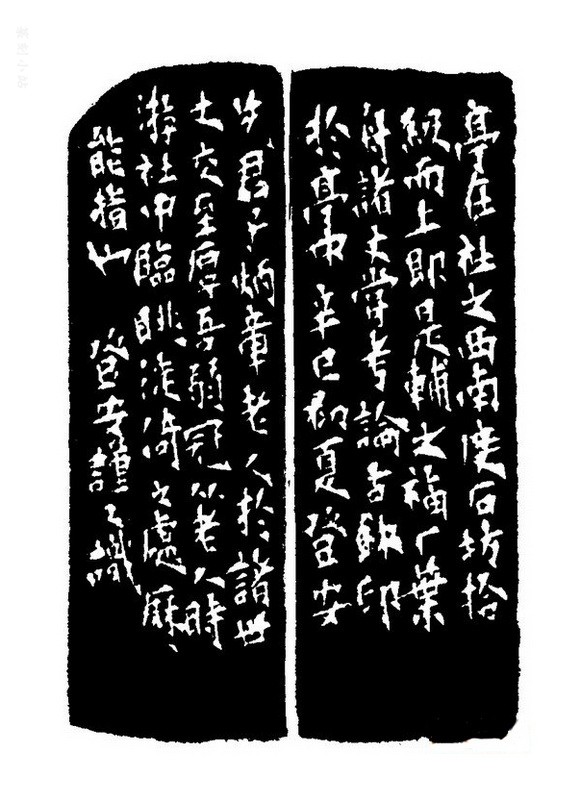 亭在社之西南度石坊拾
級而上即是輔之福厂葉
舟諸丈嘗考論古鉥印
於亭中辛巳初夏登安
君子炳章老人於諸世
丈交至厚吾弱冠從老人時
游社中臨眺徙倚之處厤々
能指也 登安謹又識